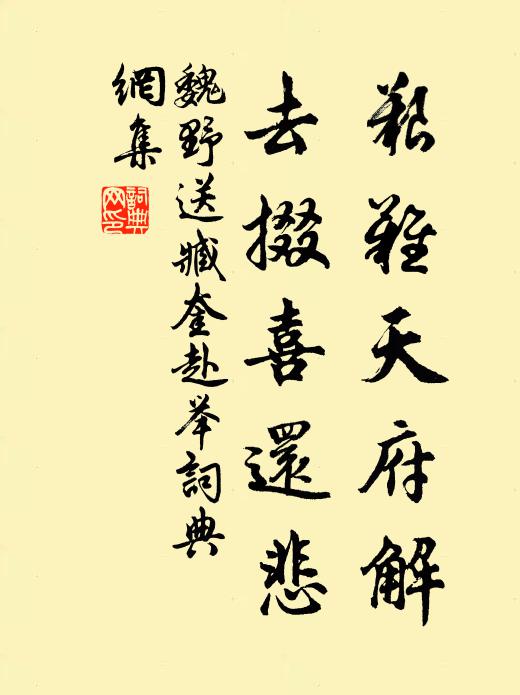 艱難天府解
去掇喜還悲
魏野送臧奎赴举詞典
網集
詞典網印